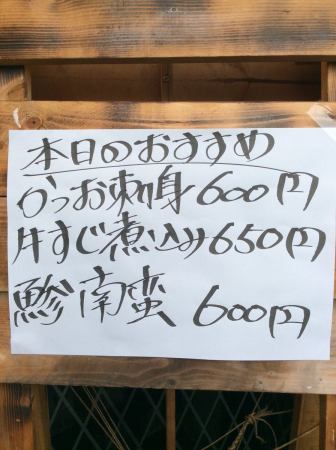 本日のおすすめ
かつお刺身600円
牛すじ煮込み650円
鯵南蛮 600円